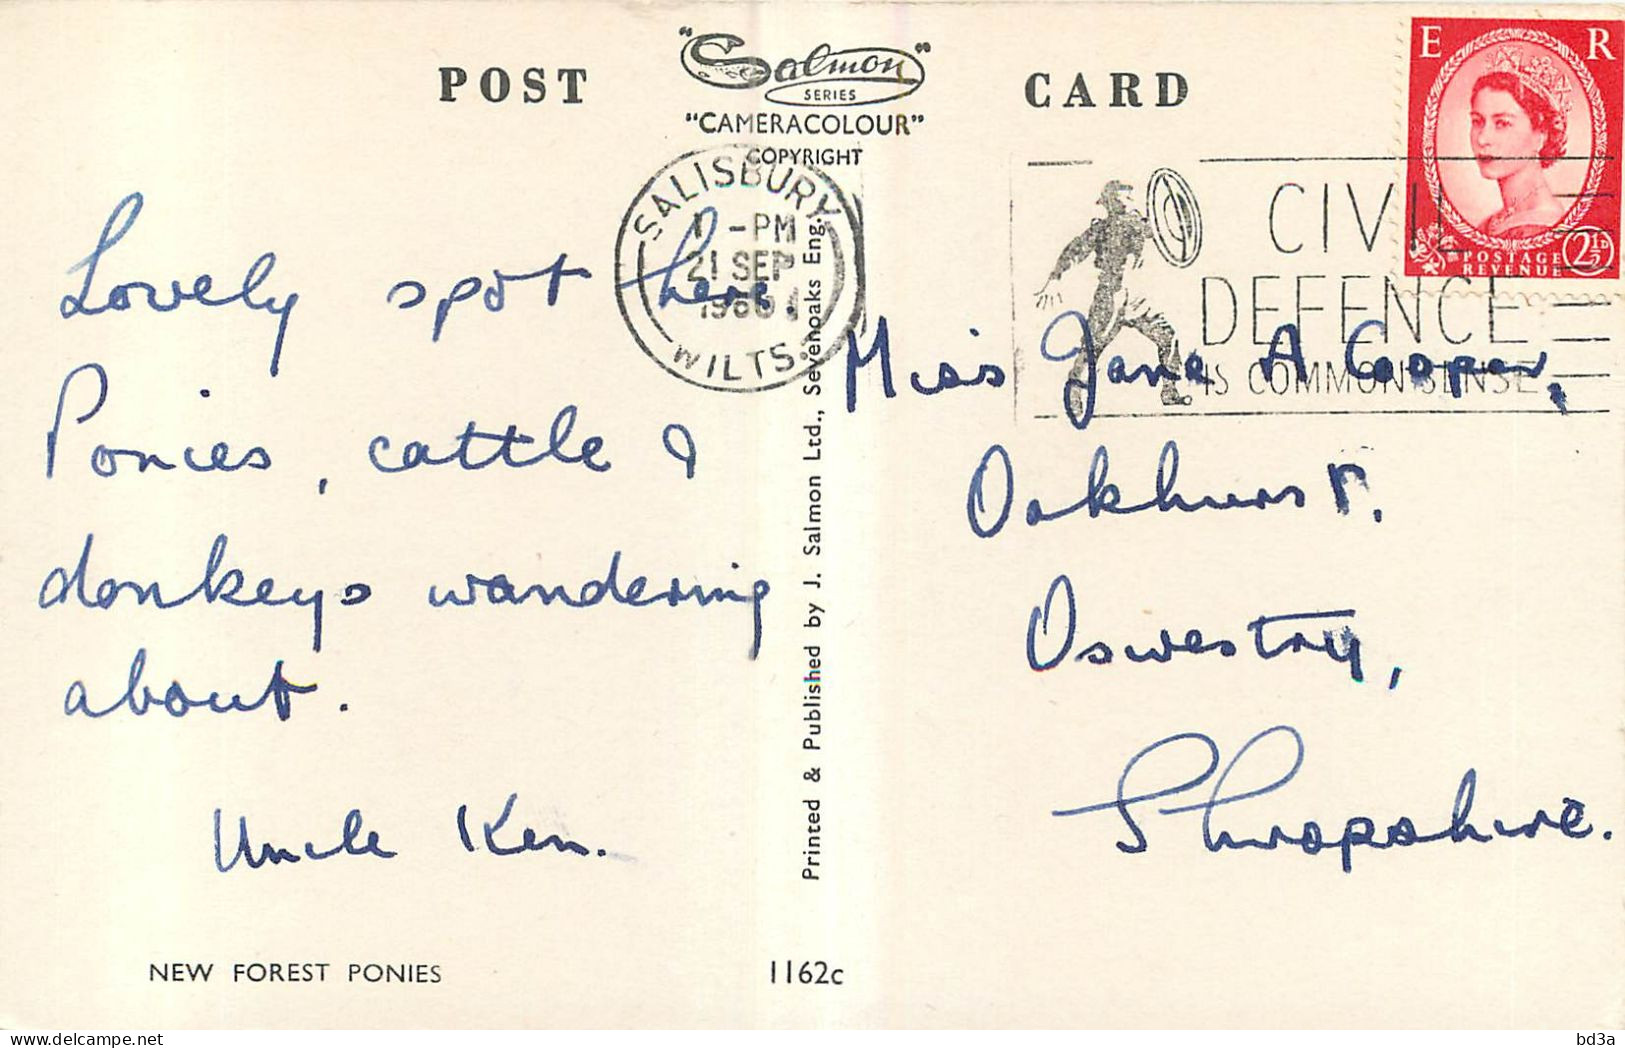 POST CARD
"Salmon"
SERIES
"CAMERACOLOUR"
COPYRIGHT
E R
POSTAGE
REVENUE
2½D
SALISBURY
-PM
21 SEP
WILTS.
CIVIL
DEFENCE
IS COMMON SENSE
Lovely spot here.
Ponies, cattle &
donkeys wandering
about.
Uncle Ken.
Printed & Published by J. Salmon Ltd., Sevenoaks Eng.
Miss Jane A Cooper,
Oakhurst.
Oswestry,
Shropshire.
NEW FOREST PONIES
1162c
bd3a